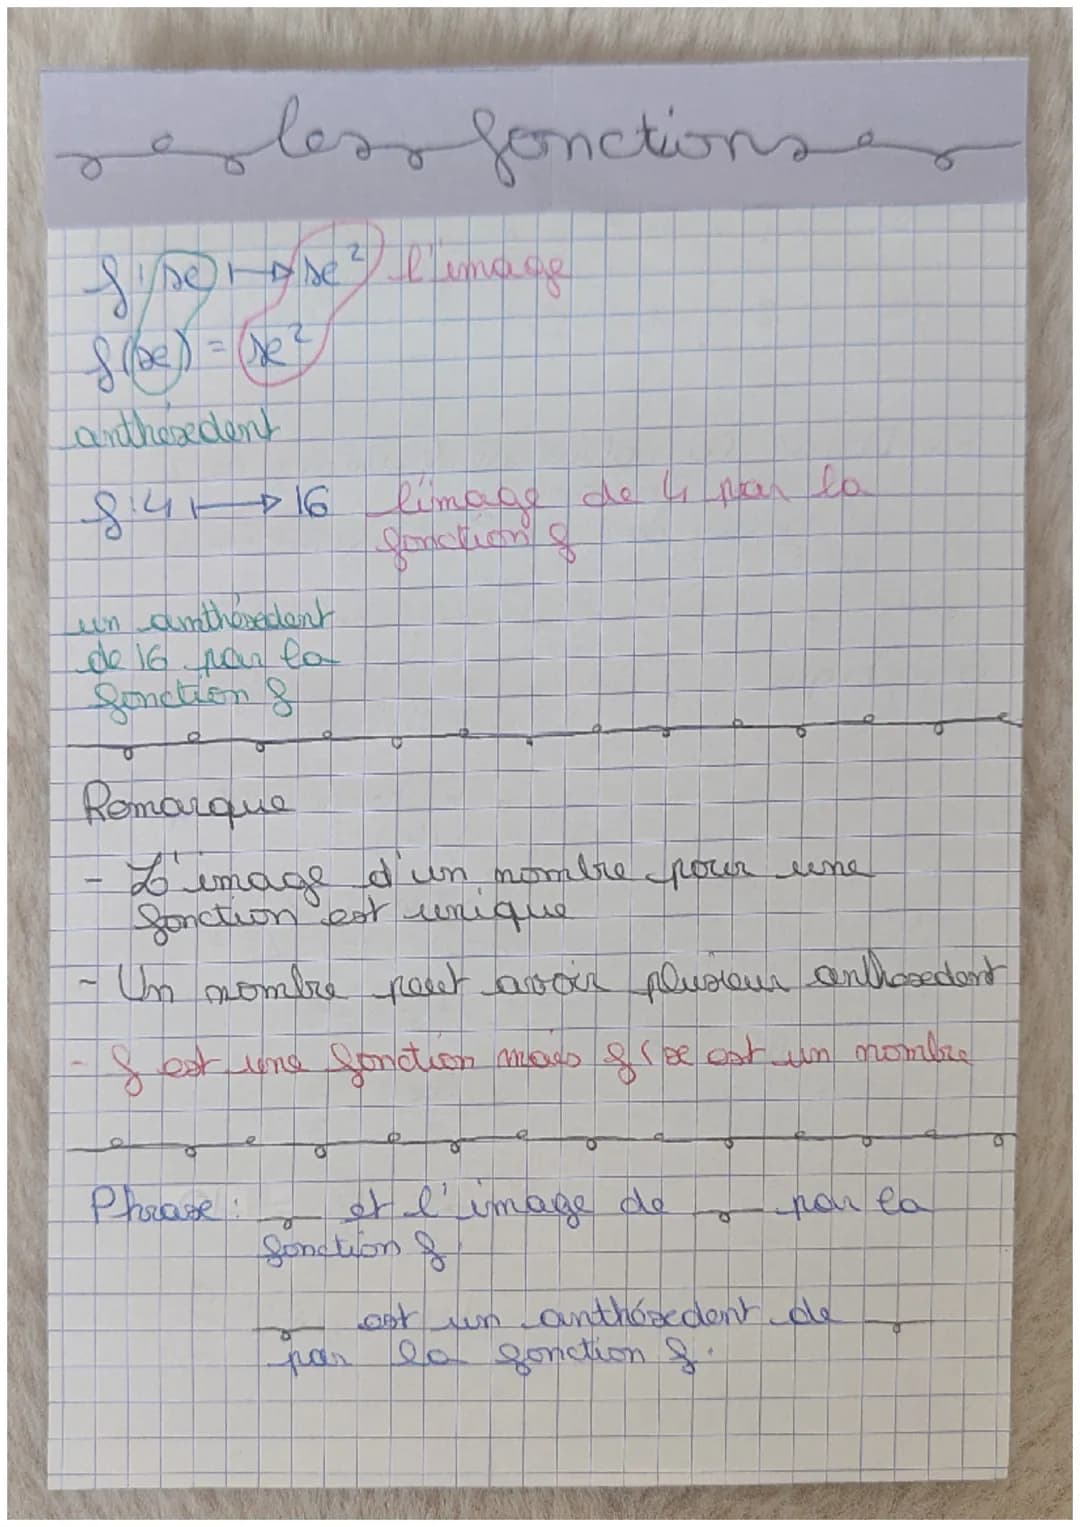 les fonctions
f: x ↦ x² l'image
f(x) = x²
anthésedent
f: 4 ↦ 16 l'image de 4 par la
fonction f
un anthésedent
de 16 par la
fonction f
Remarque
- L'image d'un nombre pour une
fonction est unique
- Un nombre peut avoir plusieur anthesedent
- f est une fonction mais f(x est un nombre
Phrase: et l'image de par la
fonction f
est un anthésedent de
par la fonction f.